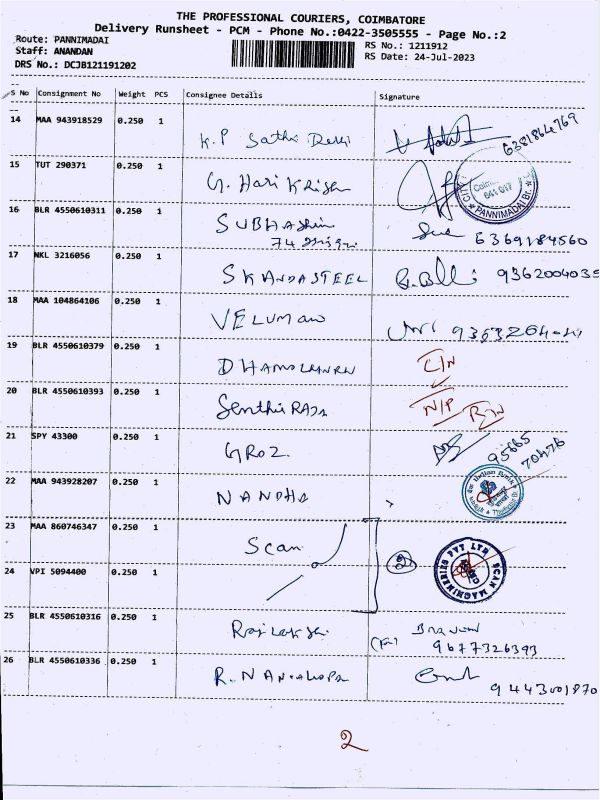 THE PROFESSIONAL COURIERS, COIMBATORE
Delivery Runsheet - PCM - Phone No.:0422-3505555 - Page No.:2
Route: PANNIMADAI
RS No.: 1211912
Staff: ANANDAN
RS Date: 24-Jul-2023
DRS No.: DCJB121191202
S No Consignment No Weight PCS Consignee Details Signature
14 MAA 943918529 0.250 1 K.P Sathi Devi 6381864769
15 TUT 290371 0.250 1 G. Hari Krish
PANNIMADAI Br.
16 BLR 4550610311 0.250 1 SUBHAshini
74 6369184560
17 NKL 3216056 0.250 1 SKANDASTEEL 9362004035
18 MAA 104864106 0.250 1 VELUMANI
19 BLR 4550610379 0.250 1
20 BLR 4550610393 0.250 1 Senthil RAJA N/P
21 SPY 43300 0.250 1 GROZ 95665
70476
22 MAA 943928207 0.250 1 NANDHA
Indian Bank
23 MAA 860746347 0.250 1 Scan 2
SCAN MACHINERIES PVT LTD
24 VPI 5094400 0.250 1
25 BLR 4550610316 0.250 1 Rajlakshi
9677326393
26 BLR 4550610336 0.250 1 9443001870
2